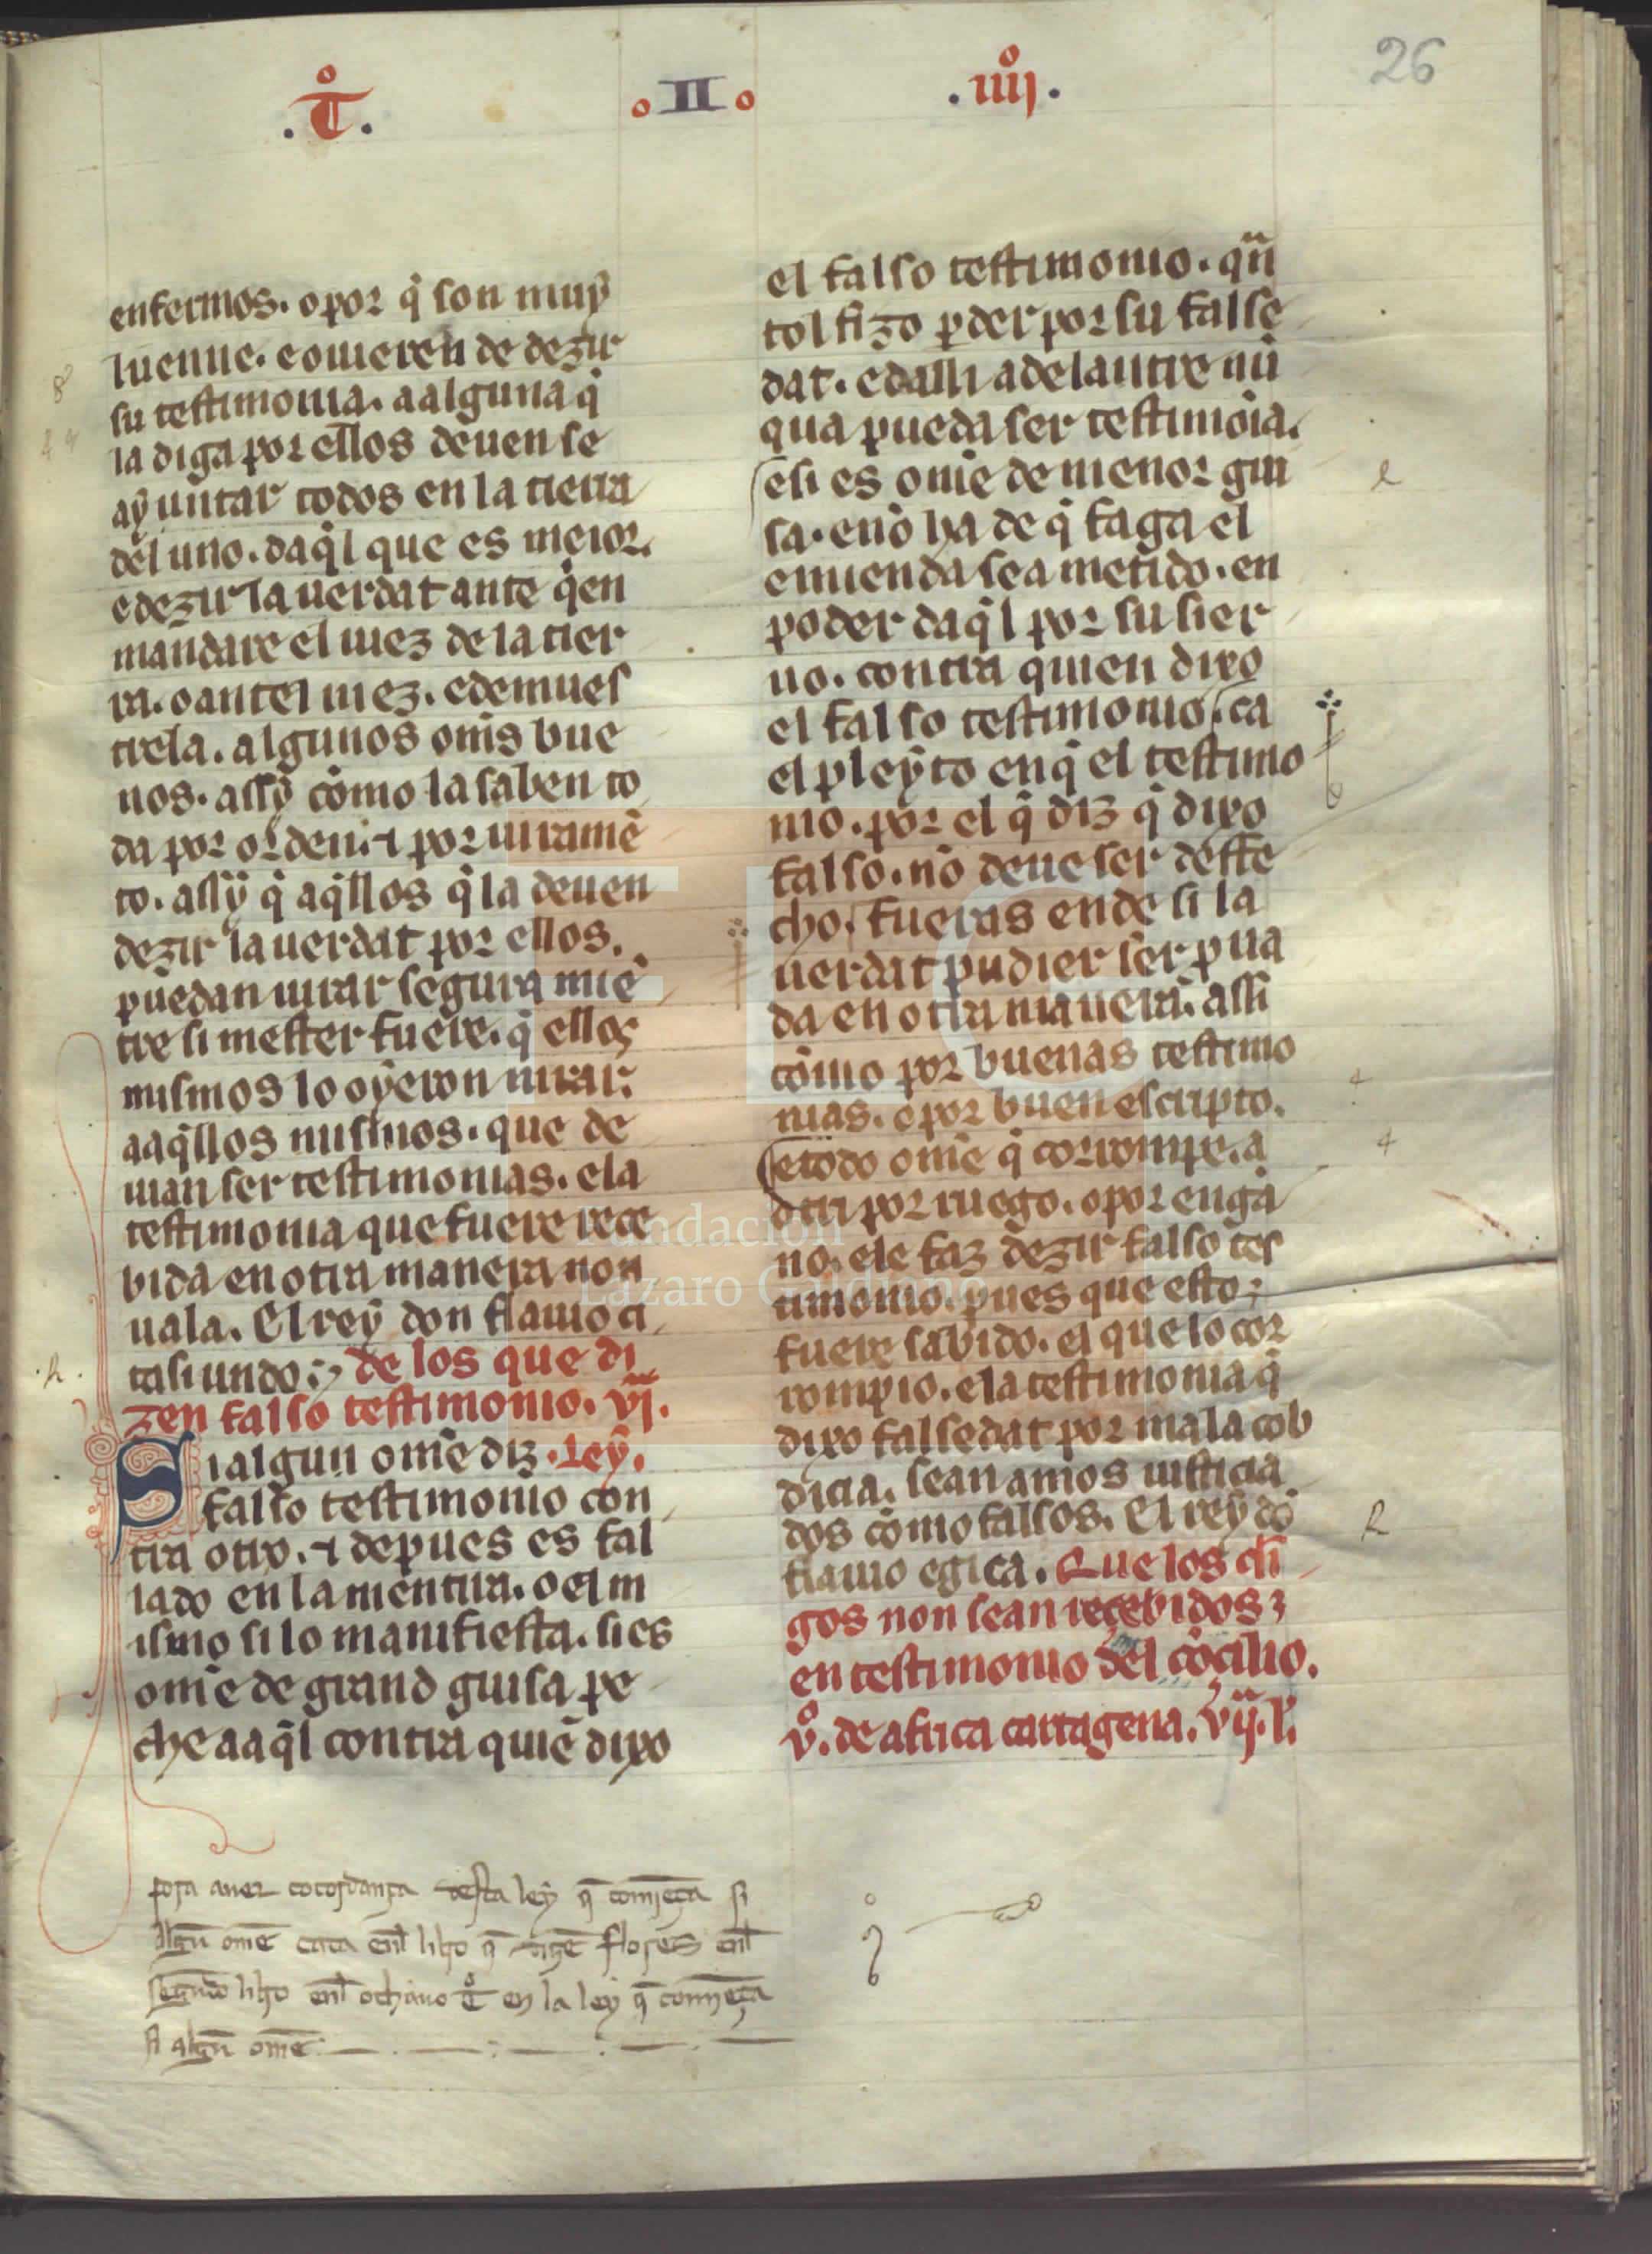 .T̊. .II. .iiij̊.
26
enfermos. o por q̄ son muy
luenne. e ouieren de dezir
su testimonia. a alguna q̄
la diga por ellos deuen se
ayuntar todos en la tierra
del uno. daq̄l que es meior.
e dezir la uerdat ante q̄en
mandare el iuez de la tier
ra. o antel iuez. e demues
trela. algunos om̄s bue
nos. assy cōmo la saben to
da por orden. ⁊ por iuramē
to. assy q̄ aq̄llos q̄ la deuen
dezir la uerdat por ellos.
puedan iurar segura miē
tre si mester fuere. q̄ ellos
mismos lo oyeron iurar.
a aq̄llos mismos. que de
uian ser testimonias. e la
testimonia que fuere rece
bida en otra manera non
uala. El rey don flauio ci
tasiundo. de los que di
zen falso testimonio. vi.
Si algun om̄e diz. Ley.
falso testimonio con
tra otro. ⁊ depues es fal
lado en la mentira. o el m
ismo si lo manifiesta. si es
om̄e de grand guisa pe
che a aq̄l contra quiē dixo
el falso testimonio. qn̄
tol fizo ꝑder por su false
dat. e dalli adelantre nū
qua pueda ser testimoīa.
e si es om̄e de menor gui
sa. e nō ha de q̄ faga el
emienda sea metido. en
poder daq̄l por su sier
uo. contra quien dixo
el falso testimonio. ca
el pleyto en q̄ el testimo
nio. por el q̄ diz q̄ dixo
falso. nō deue ser deffe
cho. fueras ende si la
uerdat pudier ser ꝓua
da en otra manera. assi
cōmo por buenas testimo
nias. o por buen escripto.
e todo om̄e q̄ corrompe. a
otri por ruego. o por enga
no. e le faz dezir falso tes
timonio. pues que esto
fuere sabido. el que lo cor
rompio. e la testimonia q̄
dixo falsedat por mala cob
dicia. sean amos iusticia
dos cōmo falsos. El rey dō
flauio egica. Que los cl̄i
gos non sean recebidos
en testimonio del cōcilio.
v̊. de africa cartagena. vij. l̄.
pora auer cocordança desta ley q̄ comieça si
algū ome cata enl̄ libro q̄ dizē flores enl̄
segundo libro enl̄ ochauo t̊ en la ley q̄ comieça
si algū ome
Fundación
Lázaro Galdiano